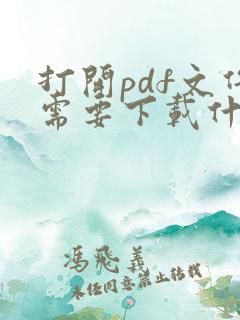 打開pdf文件
需要下載什
馮飛義
未任同意禁止转载